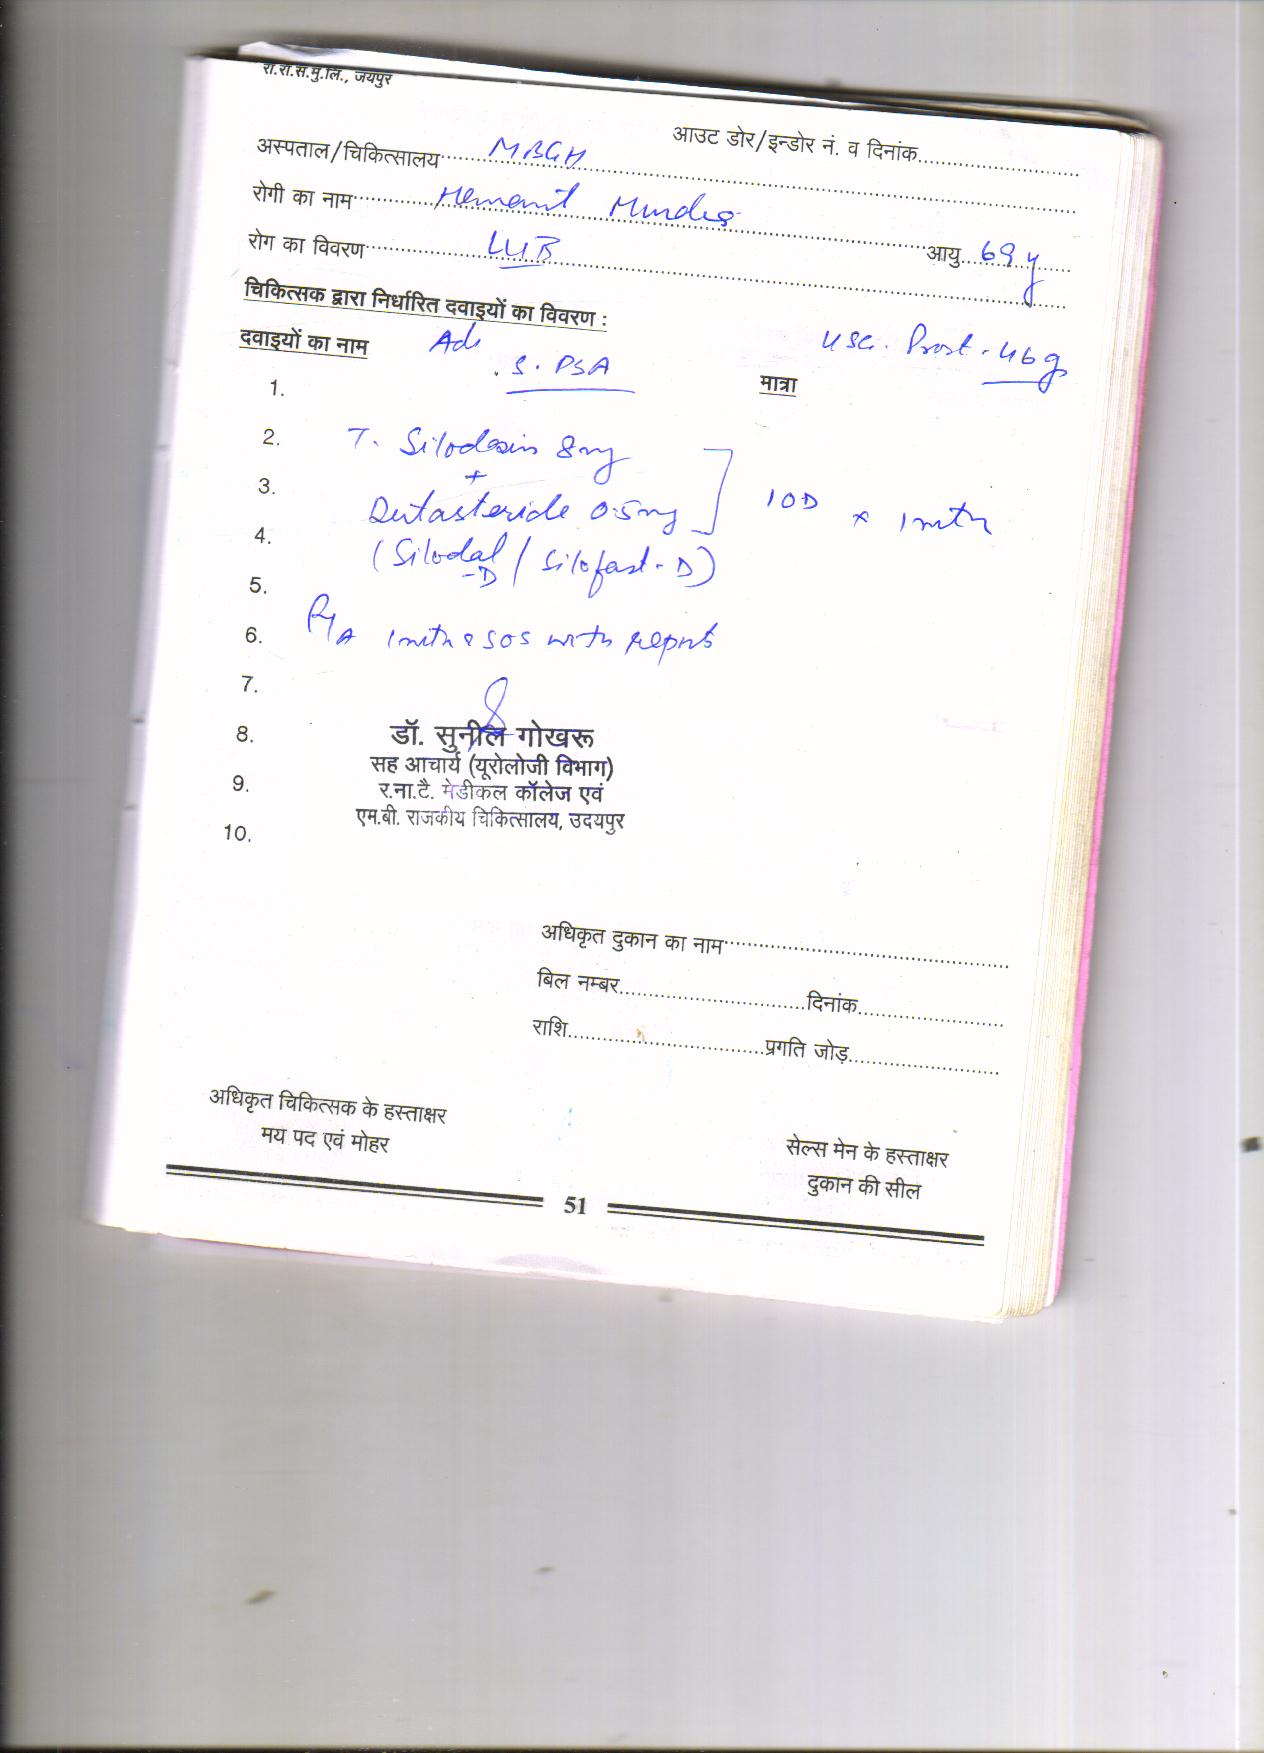 रा.रा.स.मु.लि., जयपुर
आउट डोर/इन्डोर नं. व दिनांक
अस्पताल/चिकित्सालय MBGH
रोगी का नाम Hemant
रोग का विवरण आयु 69 y
चिकित्सक द्वारा निर्धारित दवाइयों का विवरण :
दवाइयों का नाम Adv USG. Prost - 46g
S. PSA मात्रा
1.
2. T. Silodosin 8mg
+
3. Dutasteride 0.5mg 1OD x 1mth
4. (Silodal-D / Silofast-D)
5.
6. 1mth & SOS with report
7.
8. डॉ. सुनील गोखरू
सह आचार्य (यूरोलोजी विभाग)
9. र.ना.टै. मेडीकल कॉलेज एवं
एम.बी. राजकीय चिकित्सालय, उदयपुर
10.
अधिकृत दुकान का नाम
बिल नम्बर दिनांक
राशि प्रगति जोड़
अधिकृत चिकित्सक के हस्ताक्षर
मय पद एवं मोहर
सेल्स मेन के हस्ताक्षर
दुकान की सील
51